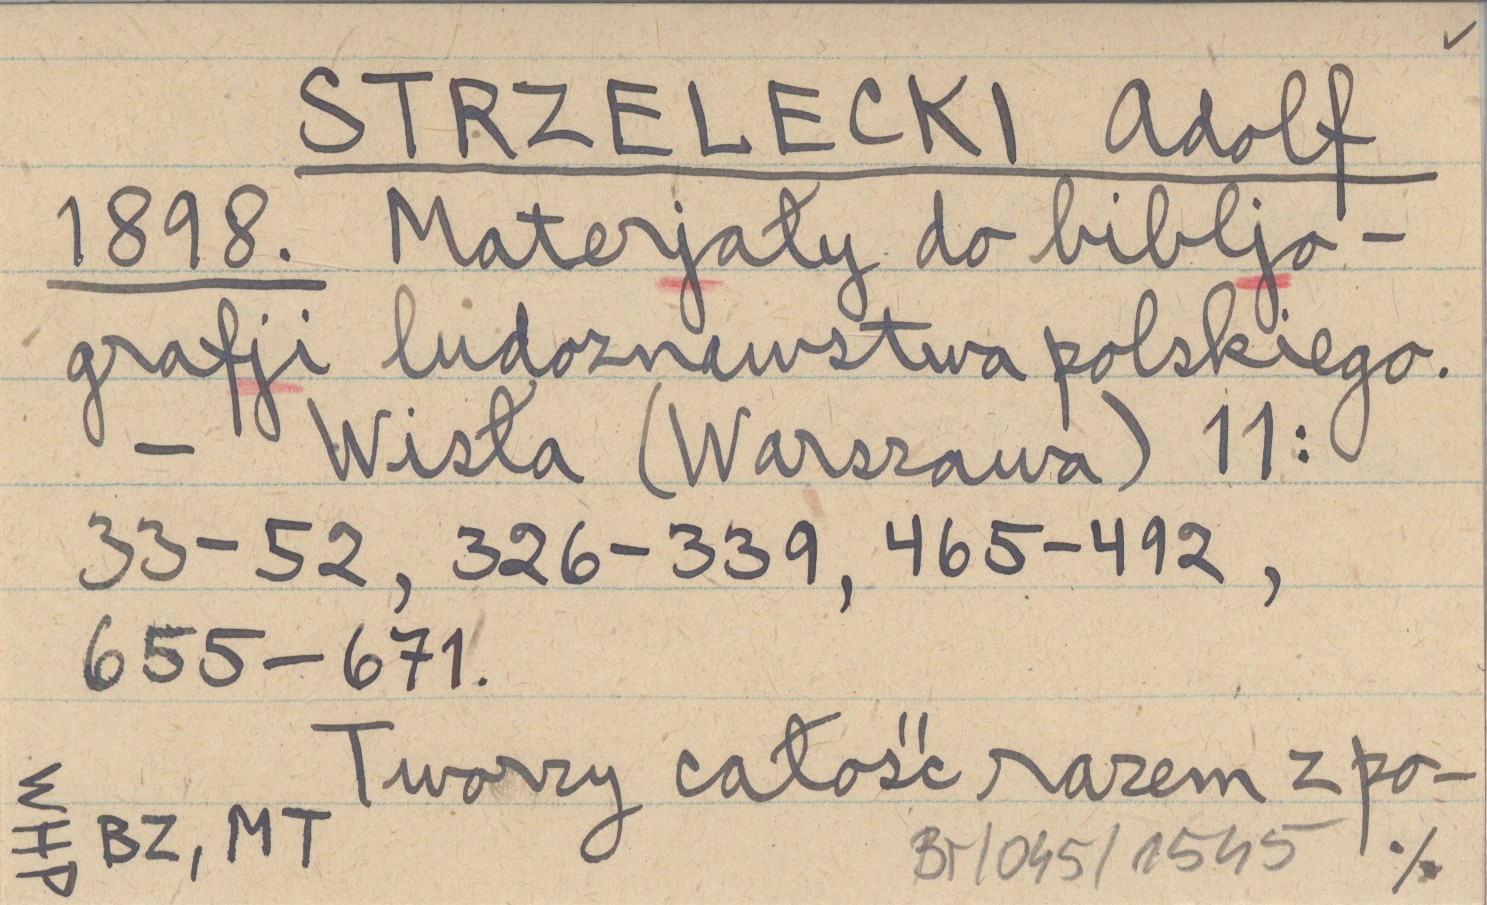 ✓
STRZELECKI Adolf
1898. Materjały do bibljo-
grafji ludoznawstwa polskiego.
— Wisła (Warszawa) 11:
33-52, 326-339, 465-492,
655-671.
Tworzy całość razem z po-
WHP
BZ, MT
Br/045/1545
./.